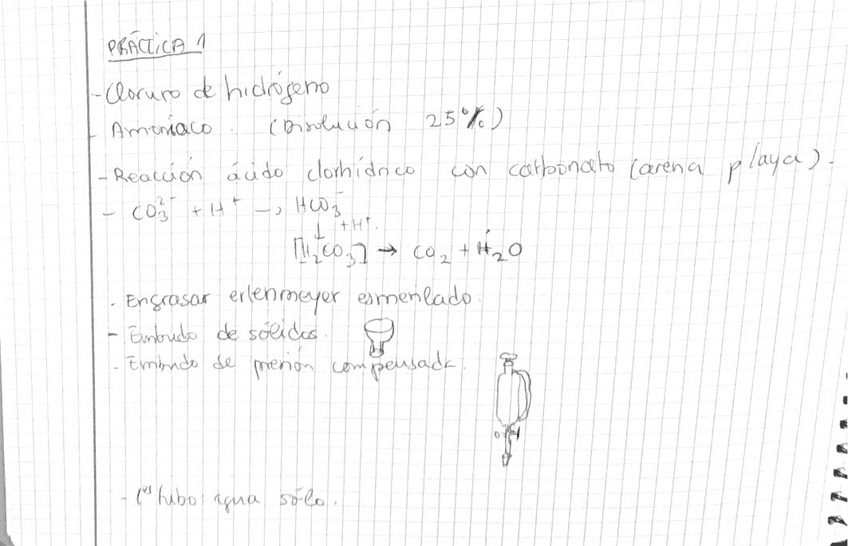 PRÁCTICA 1
- Cloruro de hidrógeno
- Amoníaco. (Disolución 25%)
- Reacción ácido clorhídrico con carbonato (arena playa).
- CO₃²⁻ + H⁺ → HCO₃⁻
↓ +H⁺
[H₂CO₃] → CO₂ + H₂O
. Engrasar erlenmeyer esmerilado.
- Embudo de sólidos.
. Embudo de presión compensada.
- 1er tubo: agua sólo.